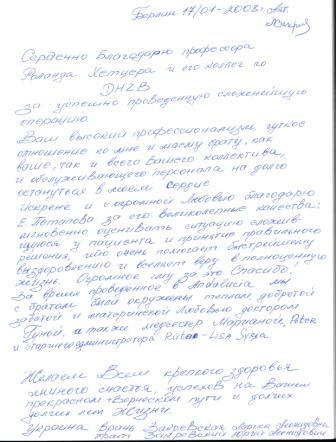 Берлин 17/01-2008г.
Сердечно Благодарю профессора
Роланда Хетцера и его коллег по
DHZB
за успешно проведенную сложнейшую
операцию
Ваш высокий профессионализм, чуткое
отношение ко мне и моему брату, как
ваше, так и всего Вашего коллектива,
и обслуживающего персонала на долго
останутся в моем сердце
Искренне и с огромной Любовью благодарю
Е. Потапова за его великолепные качества:
мгновенно оценивать ситуацию сложив-
шуюся у пациента и принятие правильного
решения, что очень помогает быстрейшему
выздоровлению и вселяет веру в полноценную
жизнь. Огромное ему за это Спасибо.
За время проведенное в мы
с братом были окружены теплом, добротой
заботой и материнской Любовью доктором
а также медсестер Марианой, Peter
и старшего администратора Lisa
Желаем Всем крепкого здоровья
много счастья, успехов на Вашем
прекрасном творческом пути и долгих
долгих лет Жизни.
Украина Врачь Закревская Леонидовна
брат Закревский Юрий Леонидович